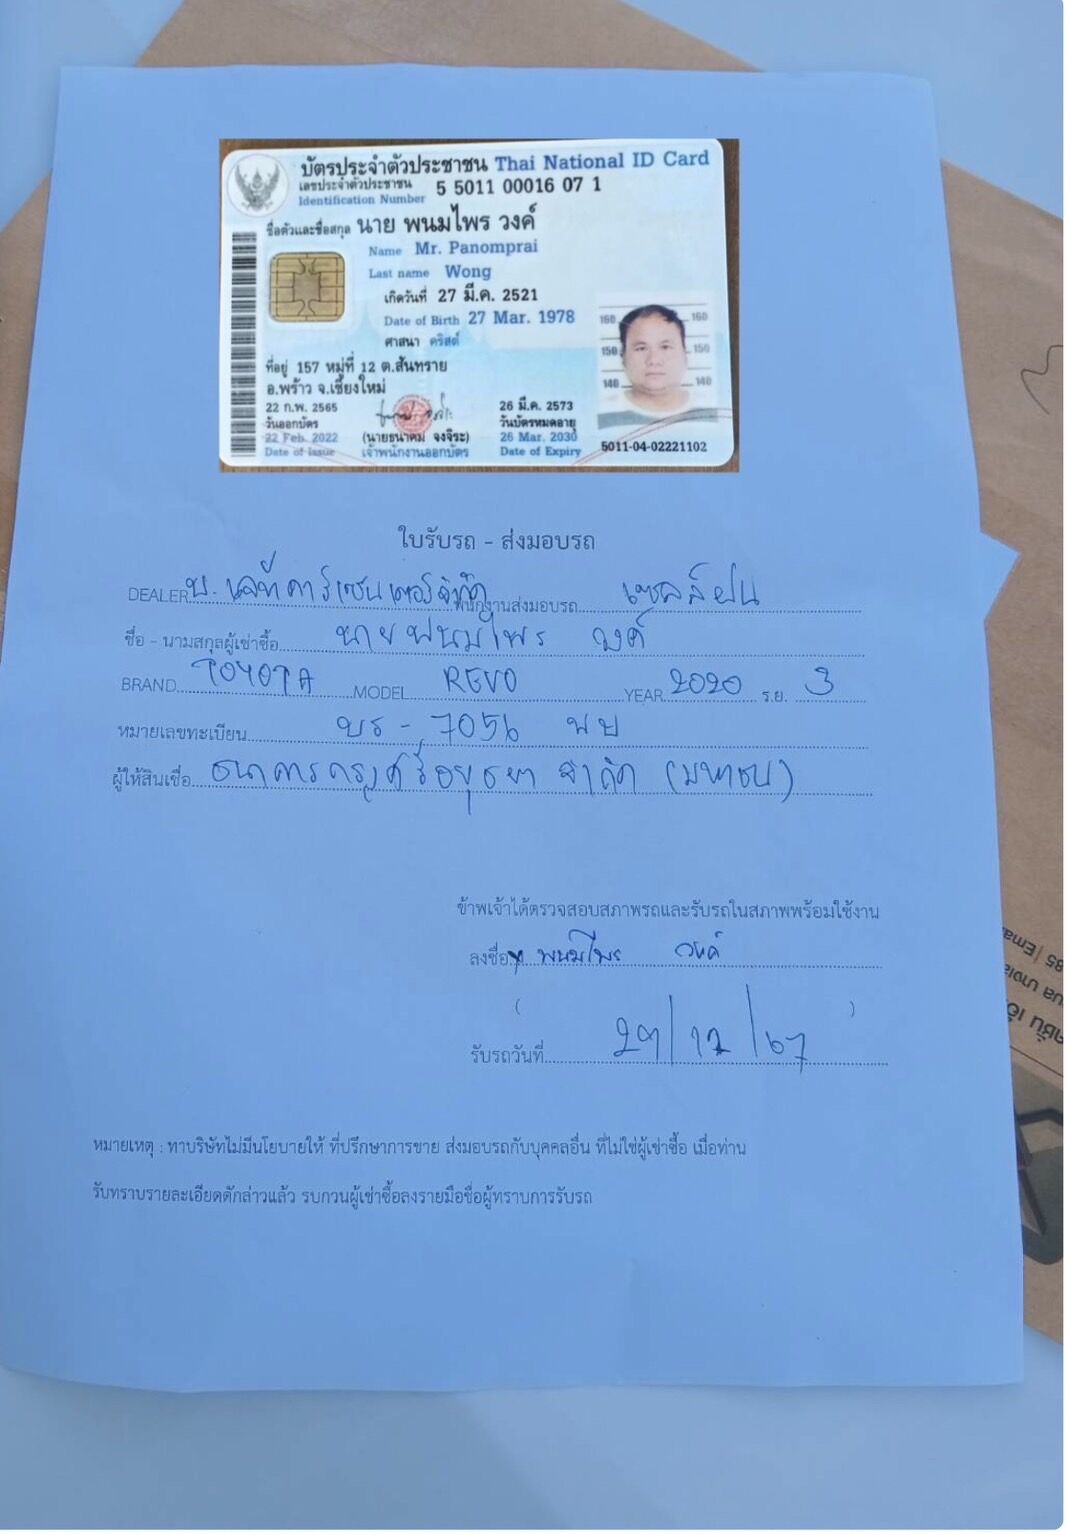 บัตรประจำตัวประชาชน Thai National ID Card
เลขประจำตัวประชาชน 5 5011 00016 07 1
Identification Number
ชื่อตัวและชื่อสกุล นาย พนมไพร วงค์
Name Mr. Panomprai
Last name Wong
เกิดวันที่ 27 มี.ค. 2521
Date of Birth 27 Mar. 1978
ศาสนา คริสต์
ที่อยู่ 157 หมู่ที่ 12 ต.สันทราย
อ.พร้าว จ.เชียงใหม่
22 ก.พ. 2565
วันออกบัตร
22 Feb. 2022
Date of Issue
(นายธนาคม จงจิระ)
เจ้าพนักงานออกบัตร
26 มี.ค. 2573
วันบัตรหมดอายุ
26 Mar. 2030
Date of Expiry
160 160
150 150
140 140
5011-04-02221102
ใบรับรถ - ส่งมอบรถ
DEALER บ. เจที คาร์เซนเตอร์ จำกัด พนักงานส่งมอบรถ เซลล์ฝน
ชื่อ - นามสกุลผู้เช่าซื้อ นายพนมไพร วงค์
BRAND TOYOTA MODEL REVO YEAR 2020 ร.ย. 3
หมายเลขทะเบียน บร - 7056 พย
ผู้ให้สินเชื่อ ธนาคารกรุงศรีอยุธยา จำกัด (มหาชน)
ข้าพเจ้าได้ตรวจสอบสภาพรถและรับรถในสภาพพร้อมใช้งาน
ลงชื่อ x พนมไพร วงค์
( )
รับรถวันที่ 27/12/67
หมายเหตุ : ทาบริษัทไม่มีนโยบายให้ ที่ปรึกษาการขาย ส่งมอบรถกับบุคคลอื่น ที่ไม่ใช่ผู้เช่าซื้อ เมื่อท่าน
รับทราบรายละเอียดดักล่าวแล้ว รบกวนผู้เช่าซื้อลงรายมือชื่อผู้ทราบการรับรถ